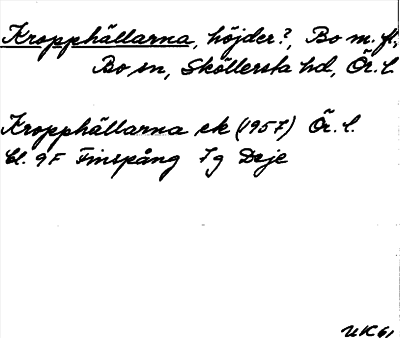 Kropphällarna, höjder?, Bo m. fl.,
Bo sn, Sköllersta hd, Ör. l.
Kropphällarna ek (1957) Ör. l.
bl. 9F Finspång 7g Deje
UK61